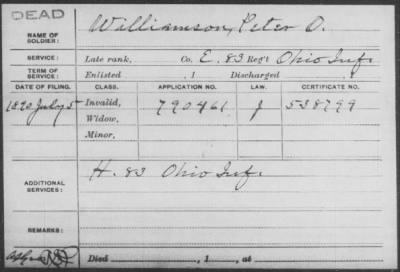 DEAD
NAME OF SOLDIER: Williamson, Peter O.
SERVICE: Late rank, Co. E. 83 Reg't Ohio Inf.
TERM OF SERVICE: Enlisted , 1 Discharged , 1
DATE OF FILING. CLASS. APPLICATION NO. LAW. CERTIFICATE NO.
1890 July 5 Invalid, 790461 J 538799
Widow,
Minor,
ADDITIONAL SERVICES: H. 83 Ohio Inf.
REMARKS:
Died , 1 , at